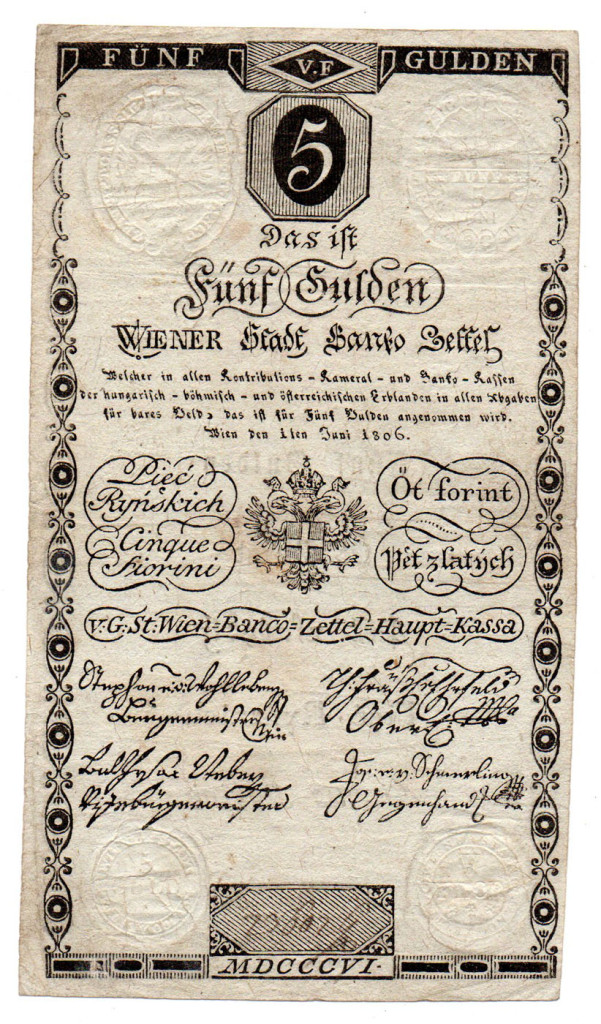 FÜNF
V.F
GULDEN
5
Das ist
Fünf Gulden
WIENER Stadt Banko Zettel
Welcher in allen Kontributions - Kameral - und Banko - Kassen
der hungarisch - böhmisch - und österreichischen Erblanden in allen Abgaben
für bares Geld, das ist für Fünf Gulden angenommen wird.
Wien den 1ten Juni 1806.
Pięć
Ryńskich
Cinque
Fiorini
Öt forint
Pět zlatých
V: G: St: Wien=Banco=Zettel=Haupt=Kassa
Stephan
Bürgermeister
Ober
Vizebürgermeister
v. Schmerling
Gegenhand
MDCCCVI.